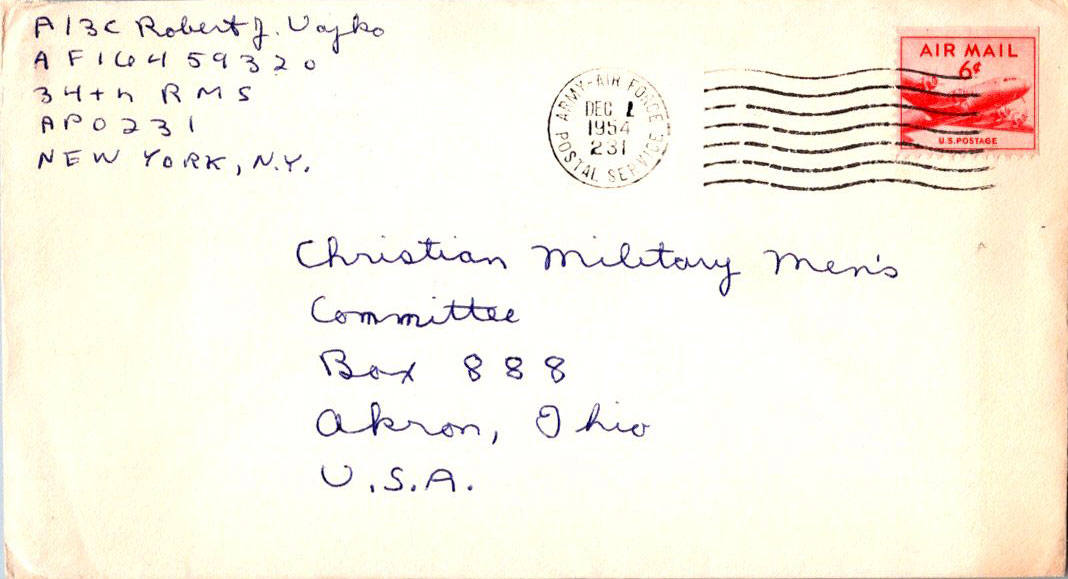 A13C Robert J. Vajko
AF16459320
34th RMS
APO 231
NEW YORK, N.Y.
ARMY-AIR FORCE POSTAL SERVICE
DEC 1
1954
231
AIR MAIL
6¢
U.S. POSTAGE
Christian Military Men's
Committee
Box 888
Akron, Ohio
U.S.A.